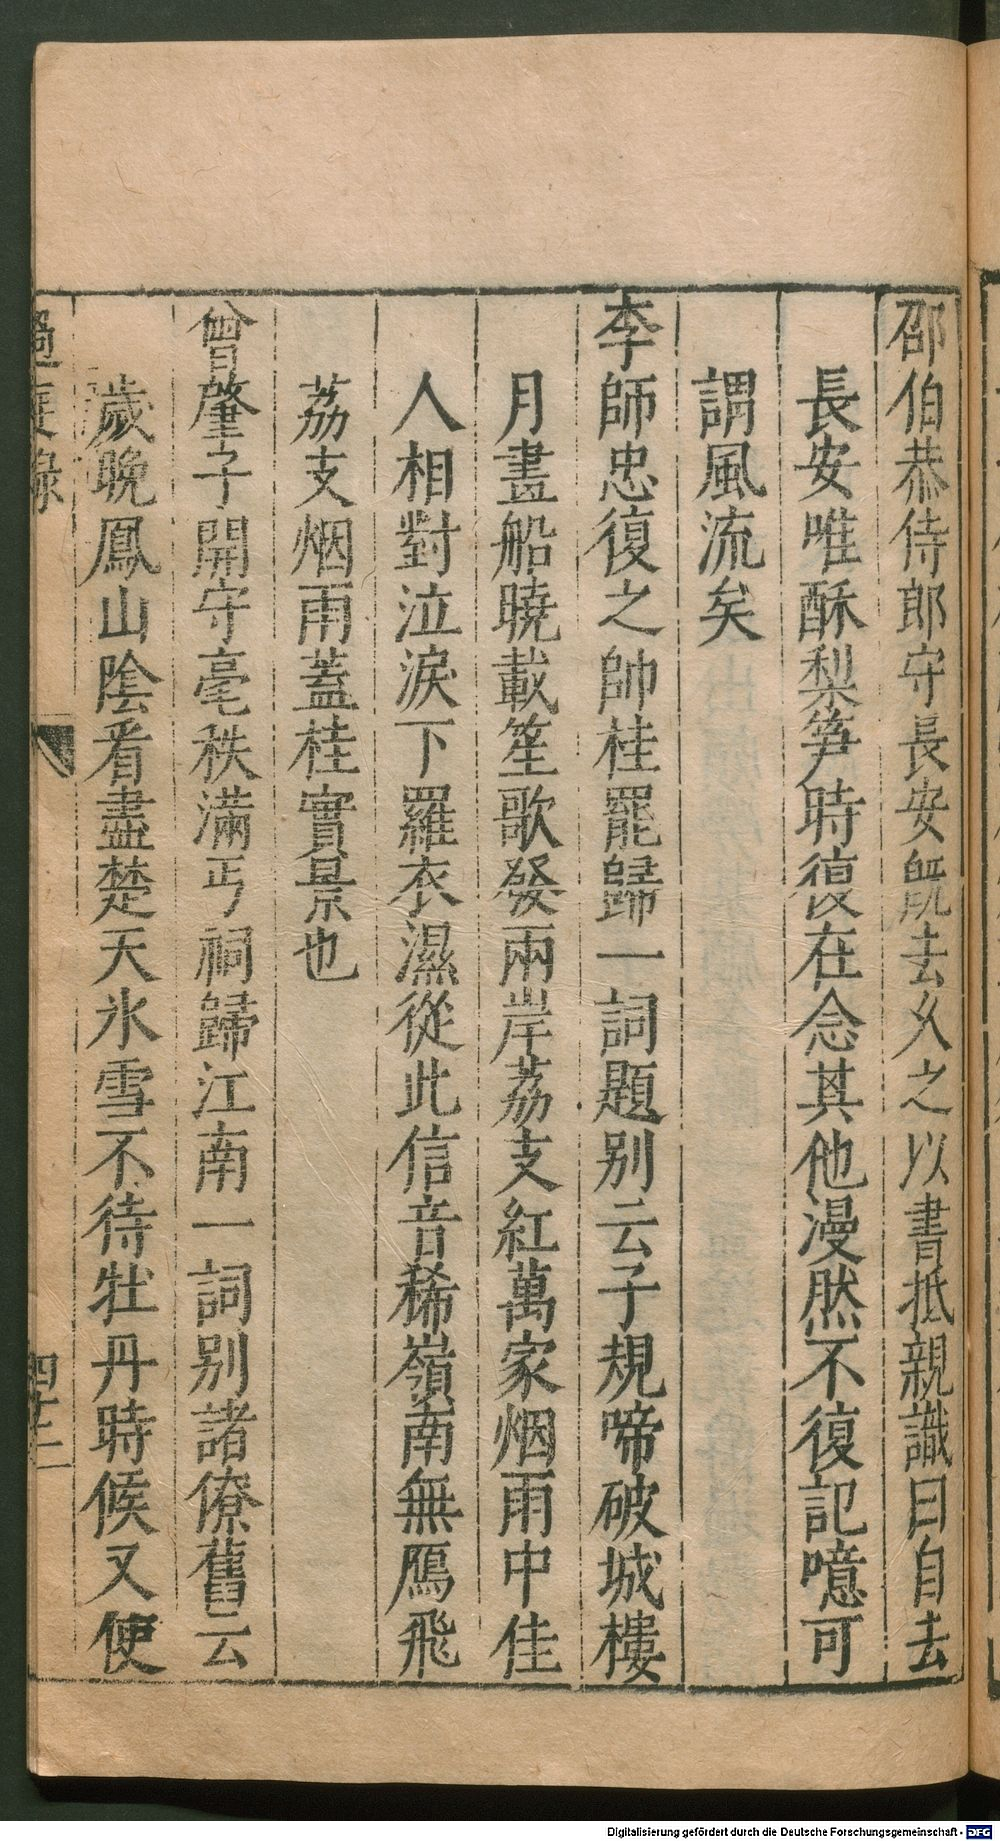 邵伯恭侍郎守長安旣去乆之以書抵親識曰自去
長安唯酥梨笋時復在念其他漫然不復記噫可
謂風流矣
李師忠復之帥桂罷歸一詞題别云子規啼破城樓
月畫船曉載笙歌發兩岸荔支紅萬家烟雨中佳
人相對泣淚下羅衣濕從此信音稀嶺南無鴈飛
荔支烟雨蓋桂實景也
曾肇子開守亳秩滿丐祠歸江南一詞別諸僚舊云
歲晚鳳山陰看盡楚天氷雪不待牡丹時候又使
過庭錄
四十二
Digitalisierung gefördert durch die Deutsche Forschungsgemeinschaft - DFG